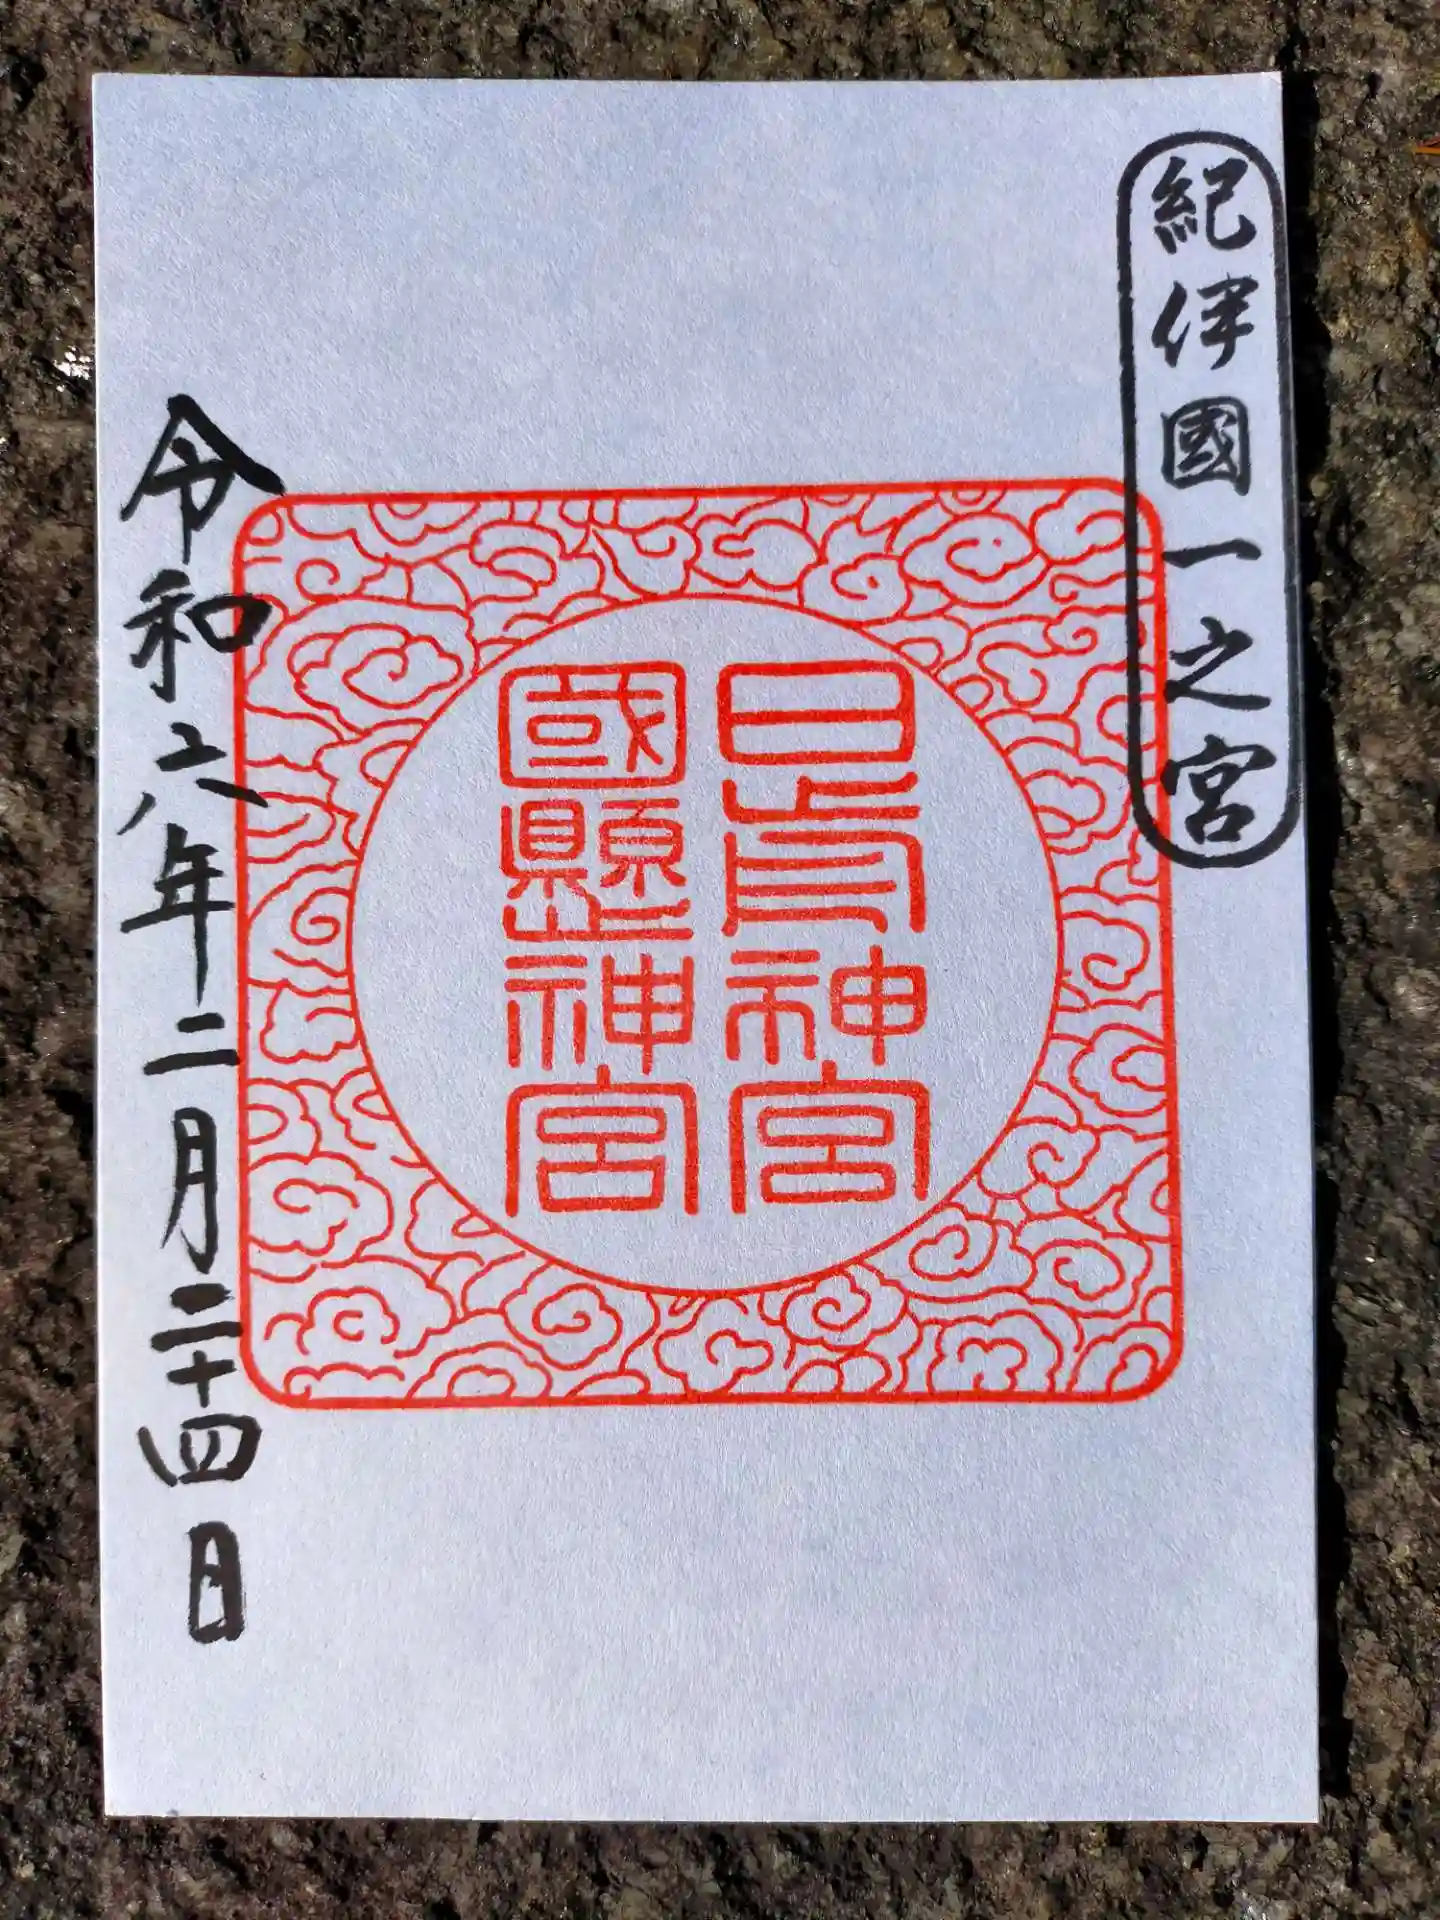 紀伊國一之宮
日前神宮
國懸神宮
令和六年二月二十四日